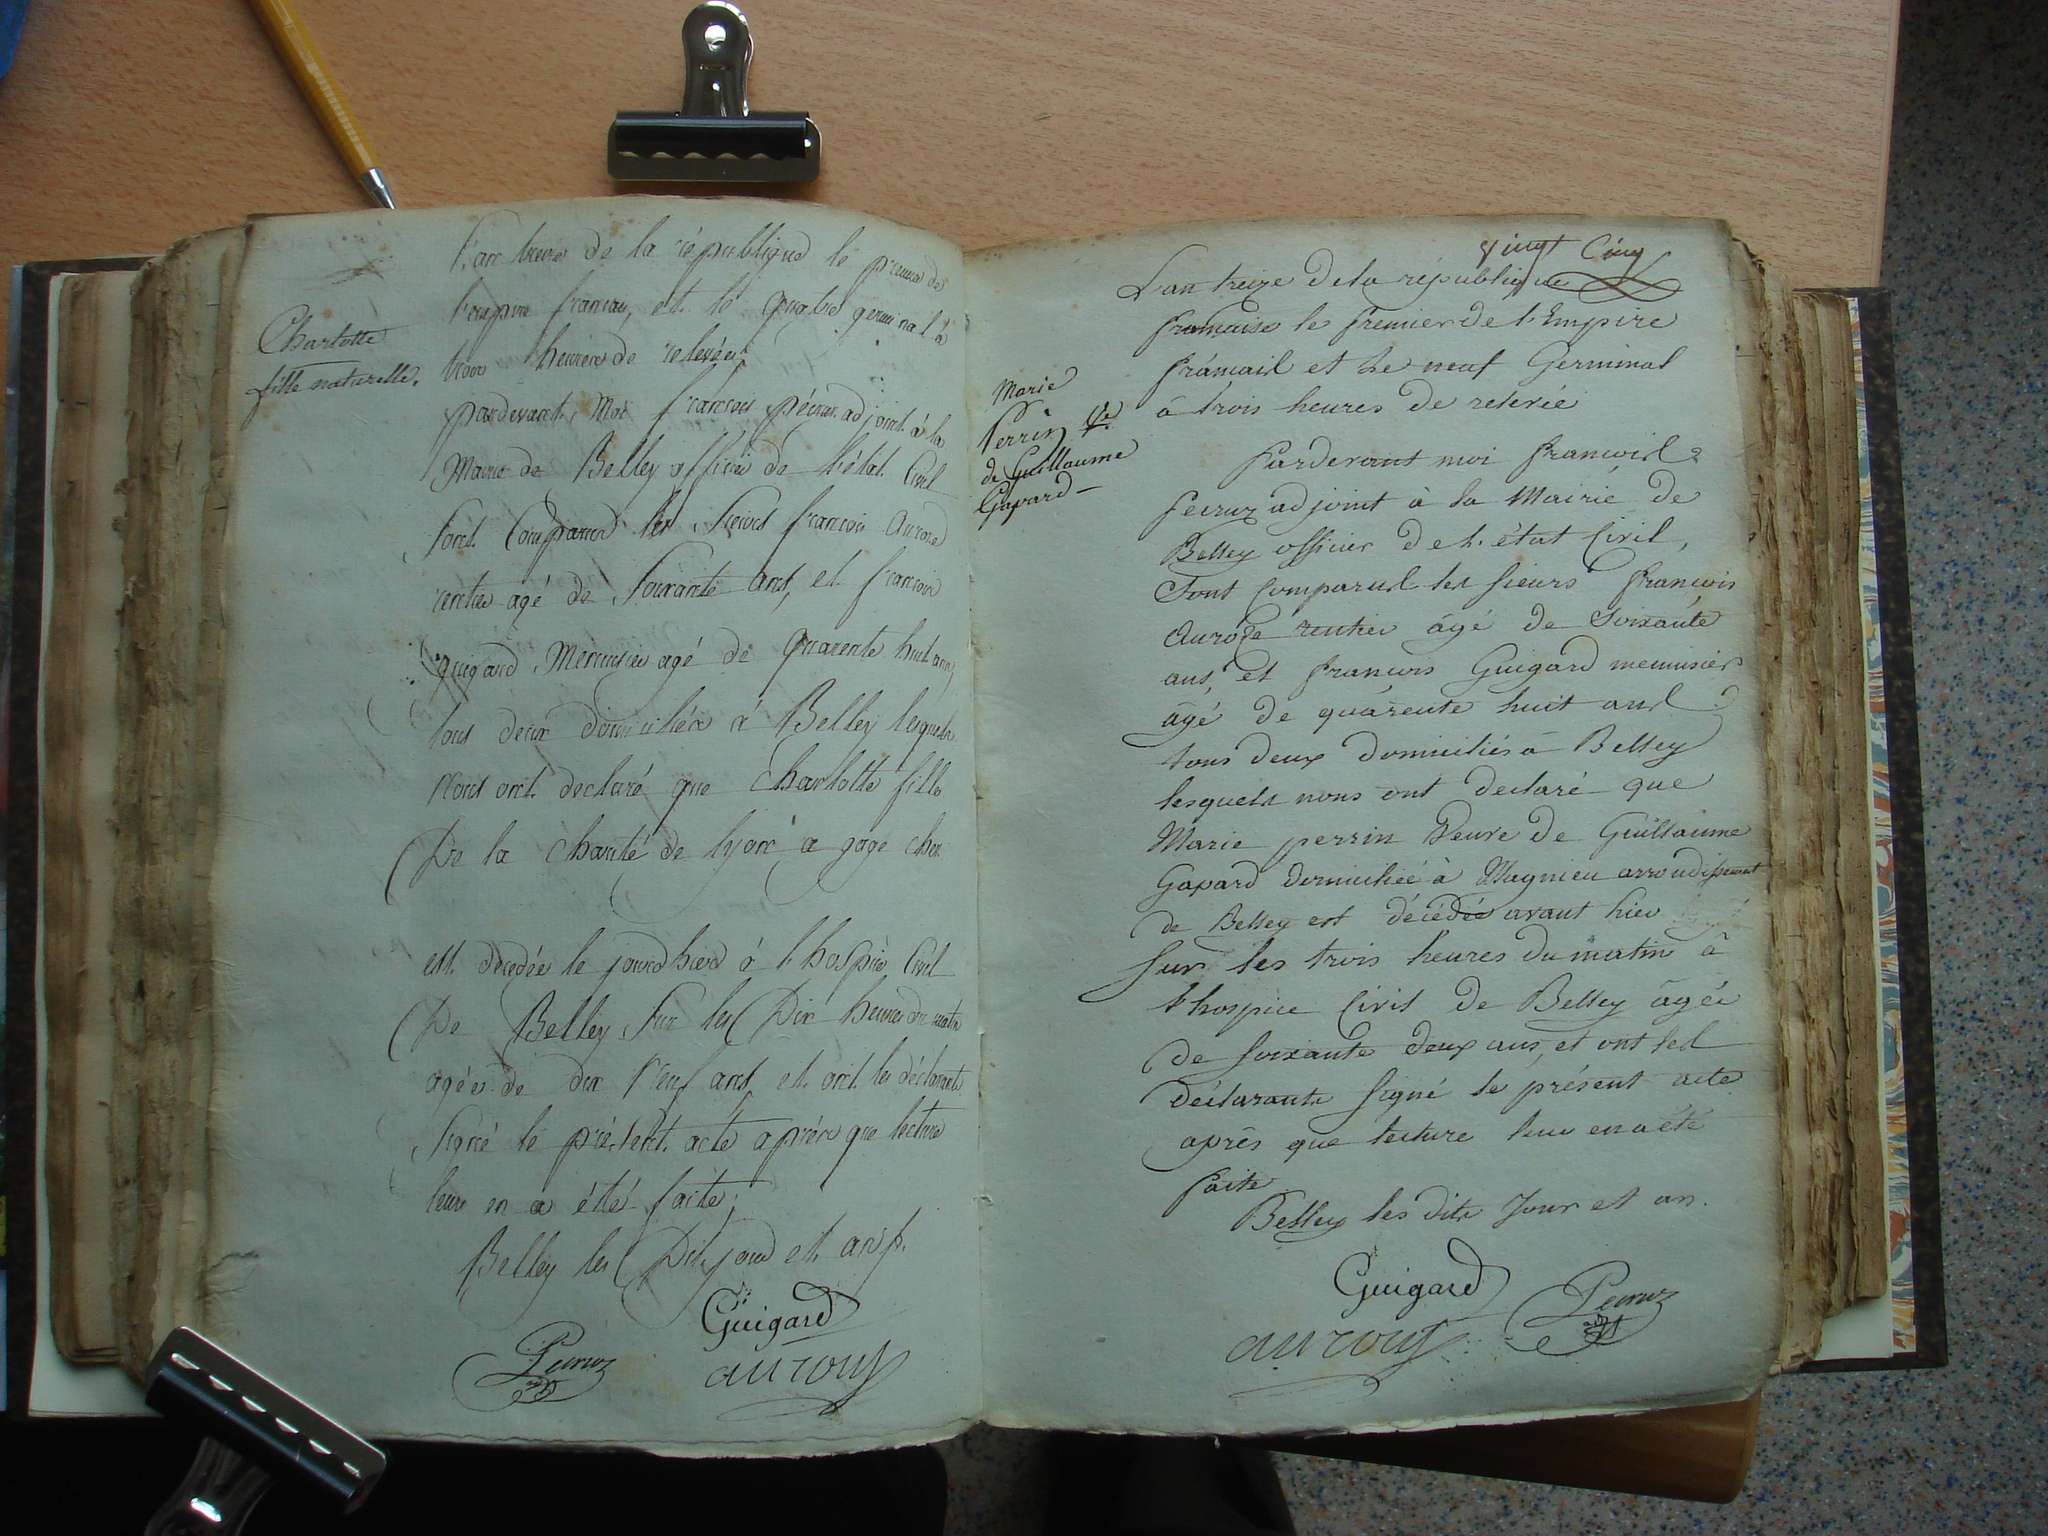 Charlotte
fille naturelle.
L'an treize de la république le premier de
l'empire francais, et le quatre germinal à
trois heures de relevée
pardevant Moi francois pécruz adjoint à la
Mairie de Belley officier de l'état Civil
Sont Comparus les Sieurs francois Auroze
rentier agé de Soixante ans, et francois
guigard Menuisier agé de quarente huit ans
tous deux domiciliés à Belley lesquels
Nous ont declaré que Charlotte fille
De la charité de lyon a gage chez
est decedée le jourd'hier à l'hospice Civil
De Belley Sur les Dix heures du matin
agée de dix neuf ans, et ont les déclarants
Signé le présent acte après que lecture
leur en a été faite;
Belley les Dits jour et an
Guigard
Pecruz
aurouz
vingt Cinq
Marie
Perrin Ve
de Guillaume
Gapard
L'an treize de la république
francaise le premier de l'Empire
francais et le neuf Germinal
à trois heures de relevée
Pardevant moi francois
Pecruz adjoint à la Mairie de
Belley officier de l'état Civil,
Sont Comparus les sieurs francois
Auroze rentier âgé de Soixante
ans, et francois Guigard menuisier
âgé de quarente huit ans
tous deux domiciliés à Belley
lesquels nous ont declaré que
Marie perrin Veuve de Guillaume
Gapard domiciliée à Magnieu arrondissement
de Belley est décédée avant hier
Sur les trois heures du matin à
l'hospice Civil de Belley âgée
de soixante deux ans, et ont les
déclarants Signé le présent acte
après que lecture leur en a été
faite
Belley les dits Jour et an.
Guigard
Pecruz
aurouz